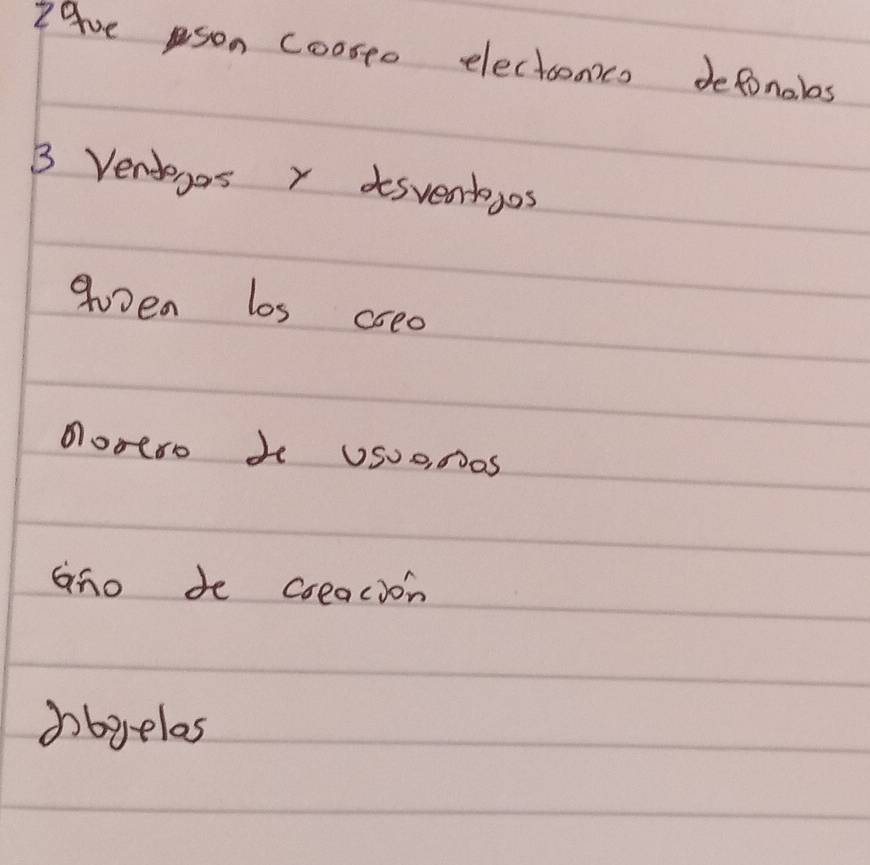 2 que son correo electronico definalas
3 Ventajas y desventajos
quien los creo
numero de usuarios
año de creación
dibujelas